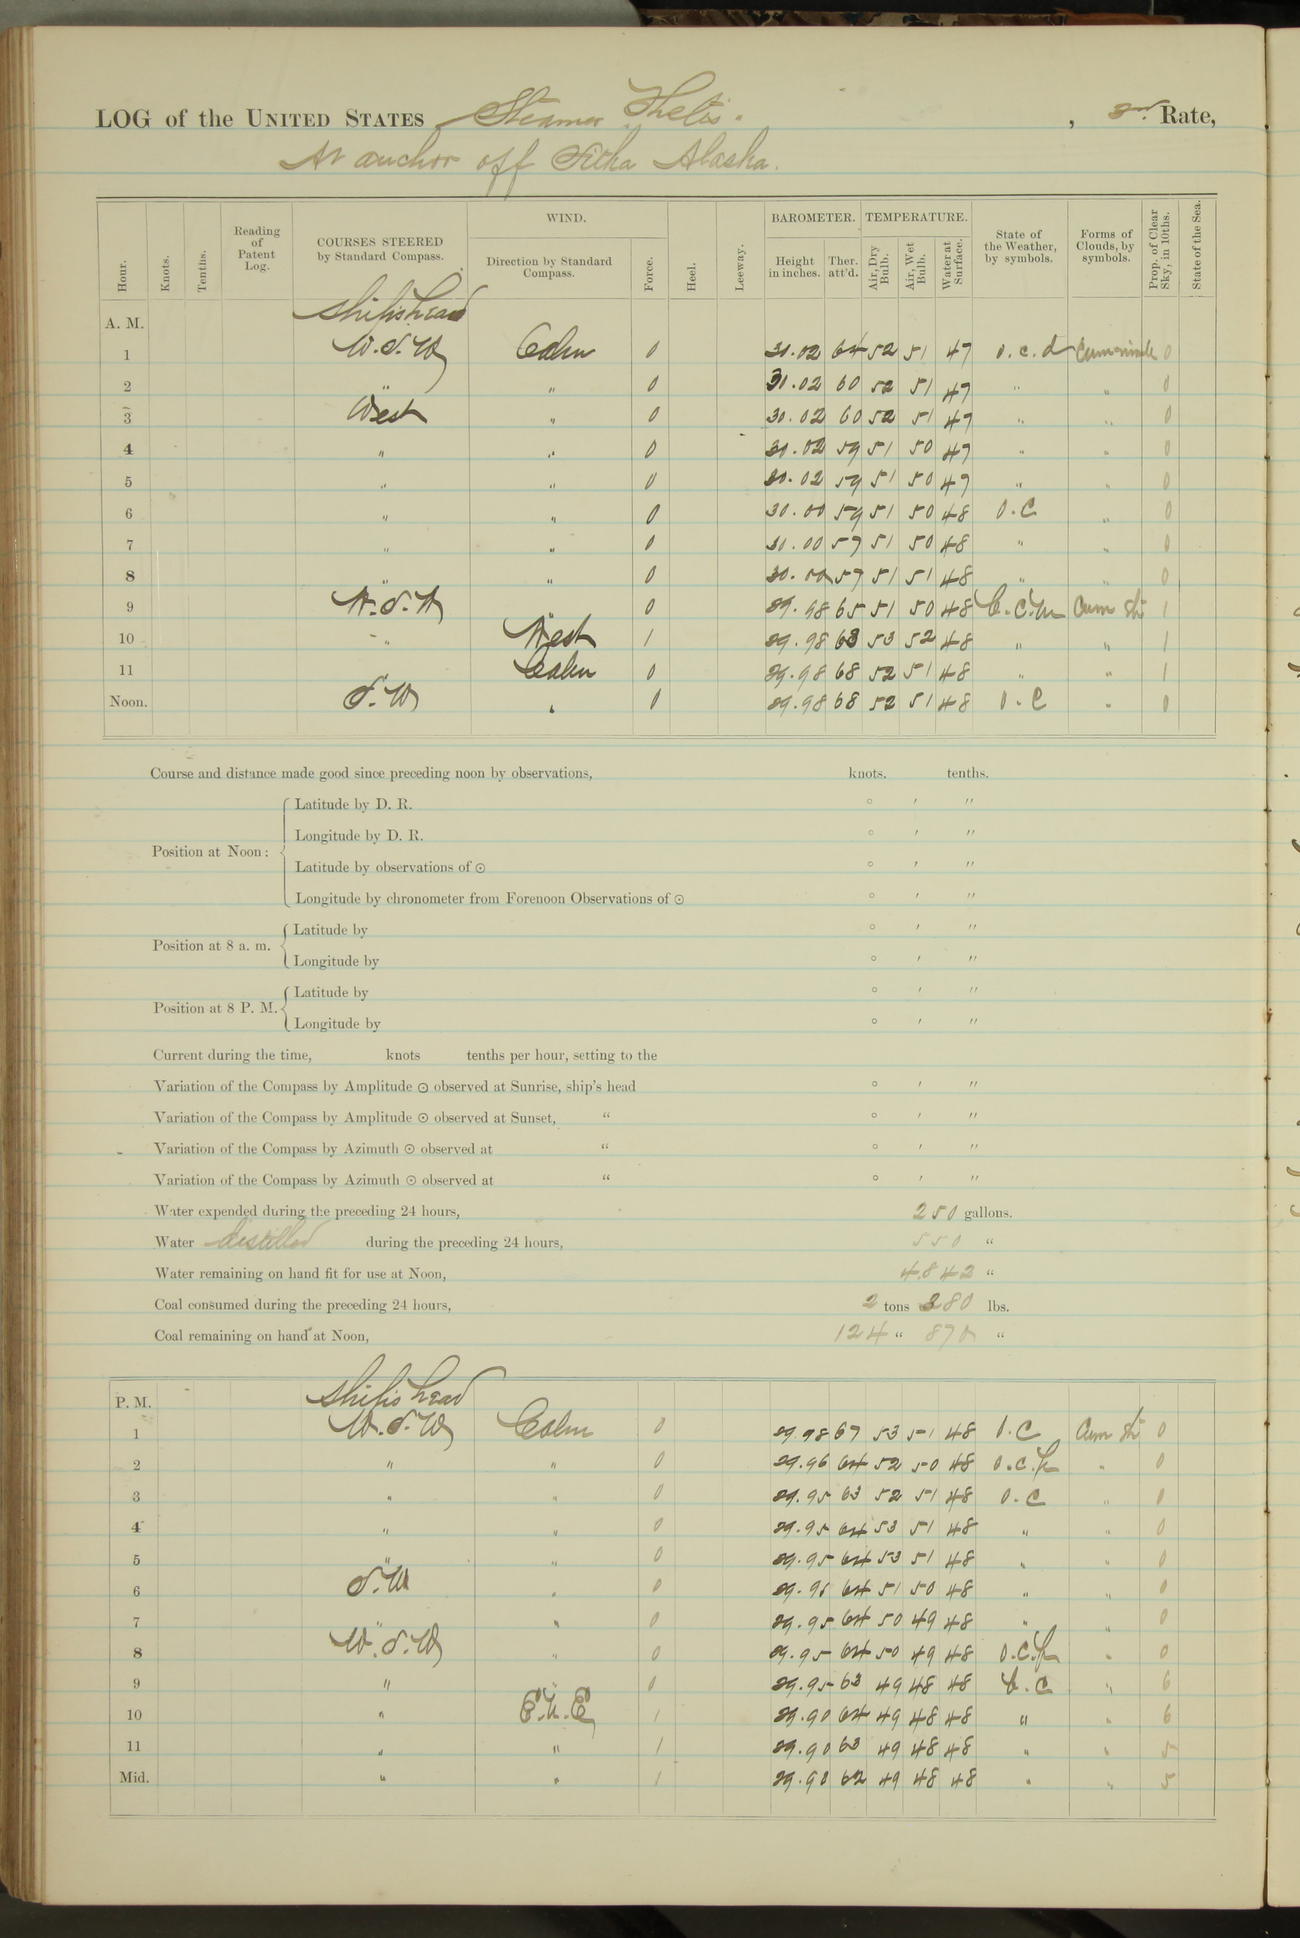 LOG of the UNITED STATES Steamer Thetis. , 3rd Rate,
At anchor off Sitka Alaska.
Hour. Knots. Tenths. Reading of Patent Log. COURSES STEERED by Standard Compass. WIND. Direction by Standard Compass. Force. Heel. Leeway. BAROMETER. Height in inches. Ther. att'd. TEMPERATURE. Air, Dry Bulb. Air, Wet Bulb. Water at Surface. State of the Weather, by symbols. Forms of Clouds, by symbols. Prop. of Clear Sky, in 10ths. State of the Sea.
A. M. Ship's head
1 W.S.W Calm 0 30.02 64 52 51 47 o.c.d 0
2 " " 0 30.02 60 52 51 47 " " 0
3 West " 0 30.02 60 52 51 47 " " 0
4 " " 0 30.02 59 51 50 47 " " 0
5 " " 0 30.02 59 51 50 47 " " 0
6 " " 0 30.00 59 51 50 48 o.c " 0
7 " " 0 30.00 57 51 50 48 " " 0
8 " " 0 30.00 57 51 51 48 " " 0
9 W.S.W " 0 29.98 65 51 50 48 b.c.m Cum Str 1
10 " West 1 29.98 63 53 52 48 " " 1
11 " Calm 0 29.98 68 52 51 48 " " 1
Noon. S.W " 0 29.98 68 52 51 48 o.c " 0
Course and distance made good since preceding noon by observations, knots. tenths.
Position at Noon: Latitude by D. R. ° ′ ″
Longitude by D. R. ° ′ ″
Latitude by observations of ⊙ ° ′ ″
Longitude by chronometer from Forenoon Observations of ⊙ ° ′ ″
Position at 8 a. m. Latitude by ° ′ ″
Longitude by ° ′ ″
Position at 8 P. M. Latitude by ° ′ ″
Longitude by ° ′ ″
Current during the time, knots tenths per hour, setting to the
Variation of the Compass by Amplitude ⊙ observed at Sunrise, ship's head ° ′ ″
Variation of the Compass by Amplitude ⊙ observed at Sunset, “ ° ′ ″
Variation of the Compass by Azimuth ⊙ observed at “ ° ′ ″
Variation of the Compass by Azimuth ⊙ observed at “ ° ′ ″
Water expended during the preceding 24 hours, 250 gallons.
Water distilled during the preceding 24 hours, 550 “
Water remaining on hand fit for use at Noon, 4842 “
Coal consumed during the preceding 24 hours, 2 tons 280 lbs.
Coal remaining on hand at Noon, 124 “ 870 “
P. M. Ship's head
1 W.S.W Calm 0 29.98 67 53 51 48 o.c Cum Str 0
2 " " 0 29.96 64 52 50 48 o.c.p " 0
3 " " 0 29.95 63 52 51 48 o.c " 0
4 " " 0 29.95 64 53 51 48 " " 0
5 " " 0 29.95 64 53 51 48 " " 0
6 S.W " 0 29.95 64 51 50 48 " " 0
7 " " 0 29.95 64 50 49 48 " " 0
8 W.S.W " 0 29.95 64 50 49 48 o.c.p " 0
9 " " 0 29.95 63 49 48 48 b.c " 6
10 " E.N.E 1 29.90 64 49 48 48 " " 6
11 " " 1 29.90 63 49 48 48 " " 5
Mid. " " 1 29.90 62 49 48 48 " " 5